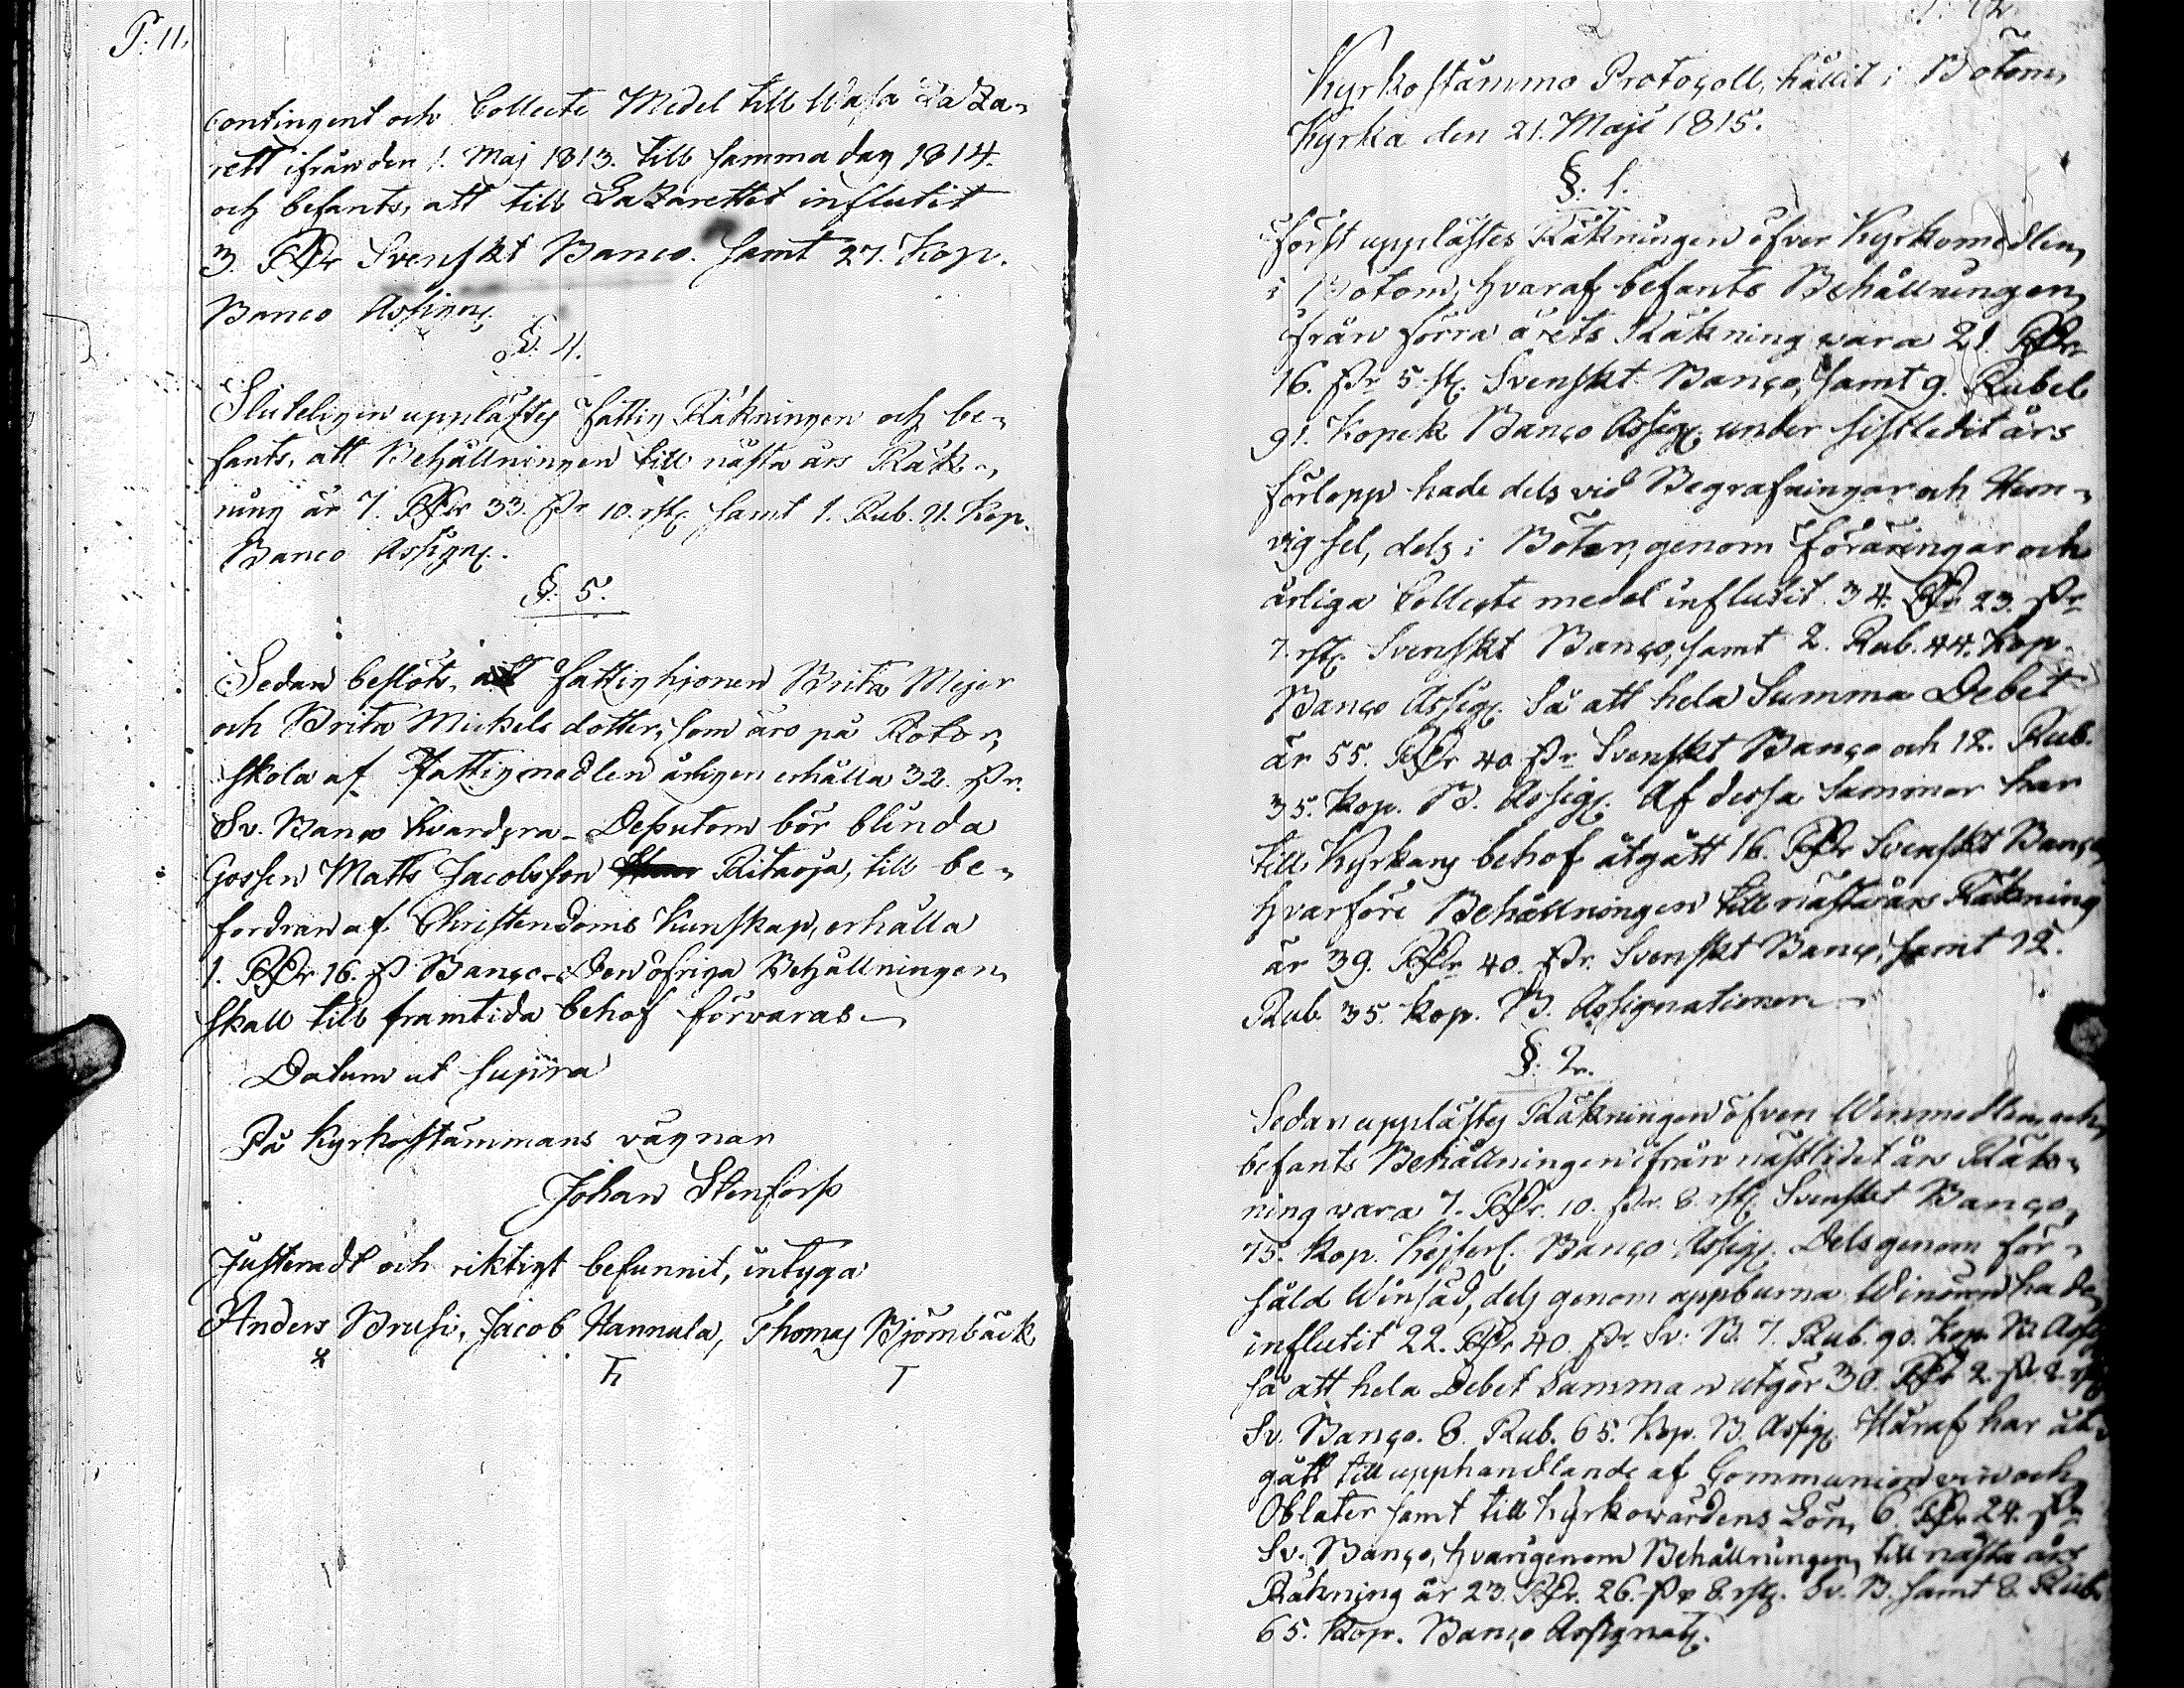 P. 11.
Contingent och Collecte Medel till Wasa Laza-
rett ifrån den 1. Maj 1813. till samma dag 1814.
och befants, att till Lazarettet influtit
3. RDr Svenskt Banco. samt 27. Kop.
Banco Assign.
§. 4.
Sluteligen upplästes Fattig Räkningen och be-
fants, att Behållningen till nästa års Räk-
ning är 7. RDr 33. sk. 10. rst. samt 1. Rub. 21. Kop.
Banco Assign.
§. 5.
Sedan beslöts, att Fattighjonen Brita Mejer
och Brita Mickelsdotter, som äro på Rotor,
skola af Fattigmedlen årligen erhålla 32. sk.
Sv. Banco hvardera - Dessutom bör blinda
Gossen Matts Jacobsson Ritaoja, till be-
fordran af Christendoms Kunskap, erhålla
1. RDr 16. sk Banco. Den öfriga Behållningen
skall till framtida behof förvaras -
Datum ut supra
På Kyrkostämmans vägnar
Johan Stenforss
Justeradt och riktigt befunnit, intyga
Anders Brusi, Jacob Hannula, Thomas Björnbäck
P. 12
Kyrkostämmo Protocoll, hållit i Bötom
Kyrka den 21. Maji 1815.
§. 1.
Först upplästes Räkningen öfver Kyrkomedlen
i Bötom, hvaraf befants Behållningen
från förra årets Räkning vara 21. RDr
16. sk. 5. rst. Svenskt Banco, samt 9. Rubel
91. Kopek Banco Assign. under sistledit års
förlopp hade dels vid Begrafningar och Hem-
vigsel, dels i Böter, genom Föräringar och
årliga Collecte medel influtit 34. RDr 23. sk
7. rst. Svenskt Banco, samt 2. Rub. 44. Kop.
Banco Assign. Så att hela Summa Debet
är 55. RDr 40 sk Svenskt Banco och 12. Rub.
35. Kop. B. Assign. Af dessa Summor har
till Kyrkans behof åtgått 16. RDr Svenskt Banco
hvarföre Behållningen till nästa års Räkning
är 39. RDr 40. sk. Svenskt Banco, samt 12.
Rub. 35. Kop. B. Assignationer -
§. 2.
Sedan upplästes Räkningen öfver Winmedlen, och
befants Behållningen ifrån nästlidet års Räk-
ning vara 7. RDr. 10. sk. 8. rst. Svenskt Banco,
75. Kop. Kejserl. Banco Assign. Dels genom för-
såld Winsäd, dels genom uppburna Winören hade
influtit 22. RDr 40. sk. Sv. B. 7. Rub. 90. Kop. B. Assig
så att hela Debet Summan utgör 30. RDr 2. sk 8. rst
Sv. Banco. 8. Rub. 65. Kop. B. Assign. Häraf har åt-
gått till upphandlande af Communion vin och
Oblater samt till Kyrkowärdens Lön, 6. RDr 24. sk
Sv. Banco, hvarigenom Behållningen till nästa års
Räkning är 23. RDr. 26. sk 8. rst. Sv. B. samt 8. Rub.
65. Kop. Banco Assignat.